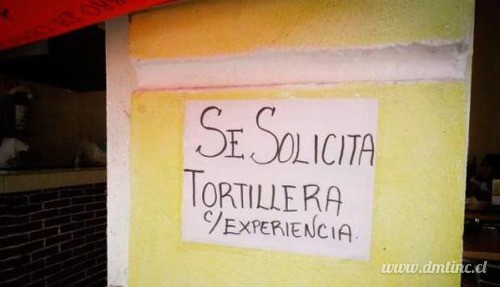 SE SOLICITA
TORTILLERA
C/EXPERIENCIA.
www.dmtinc.cl